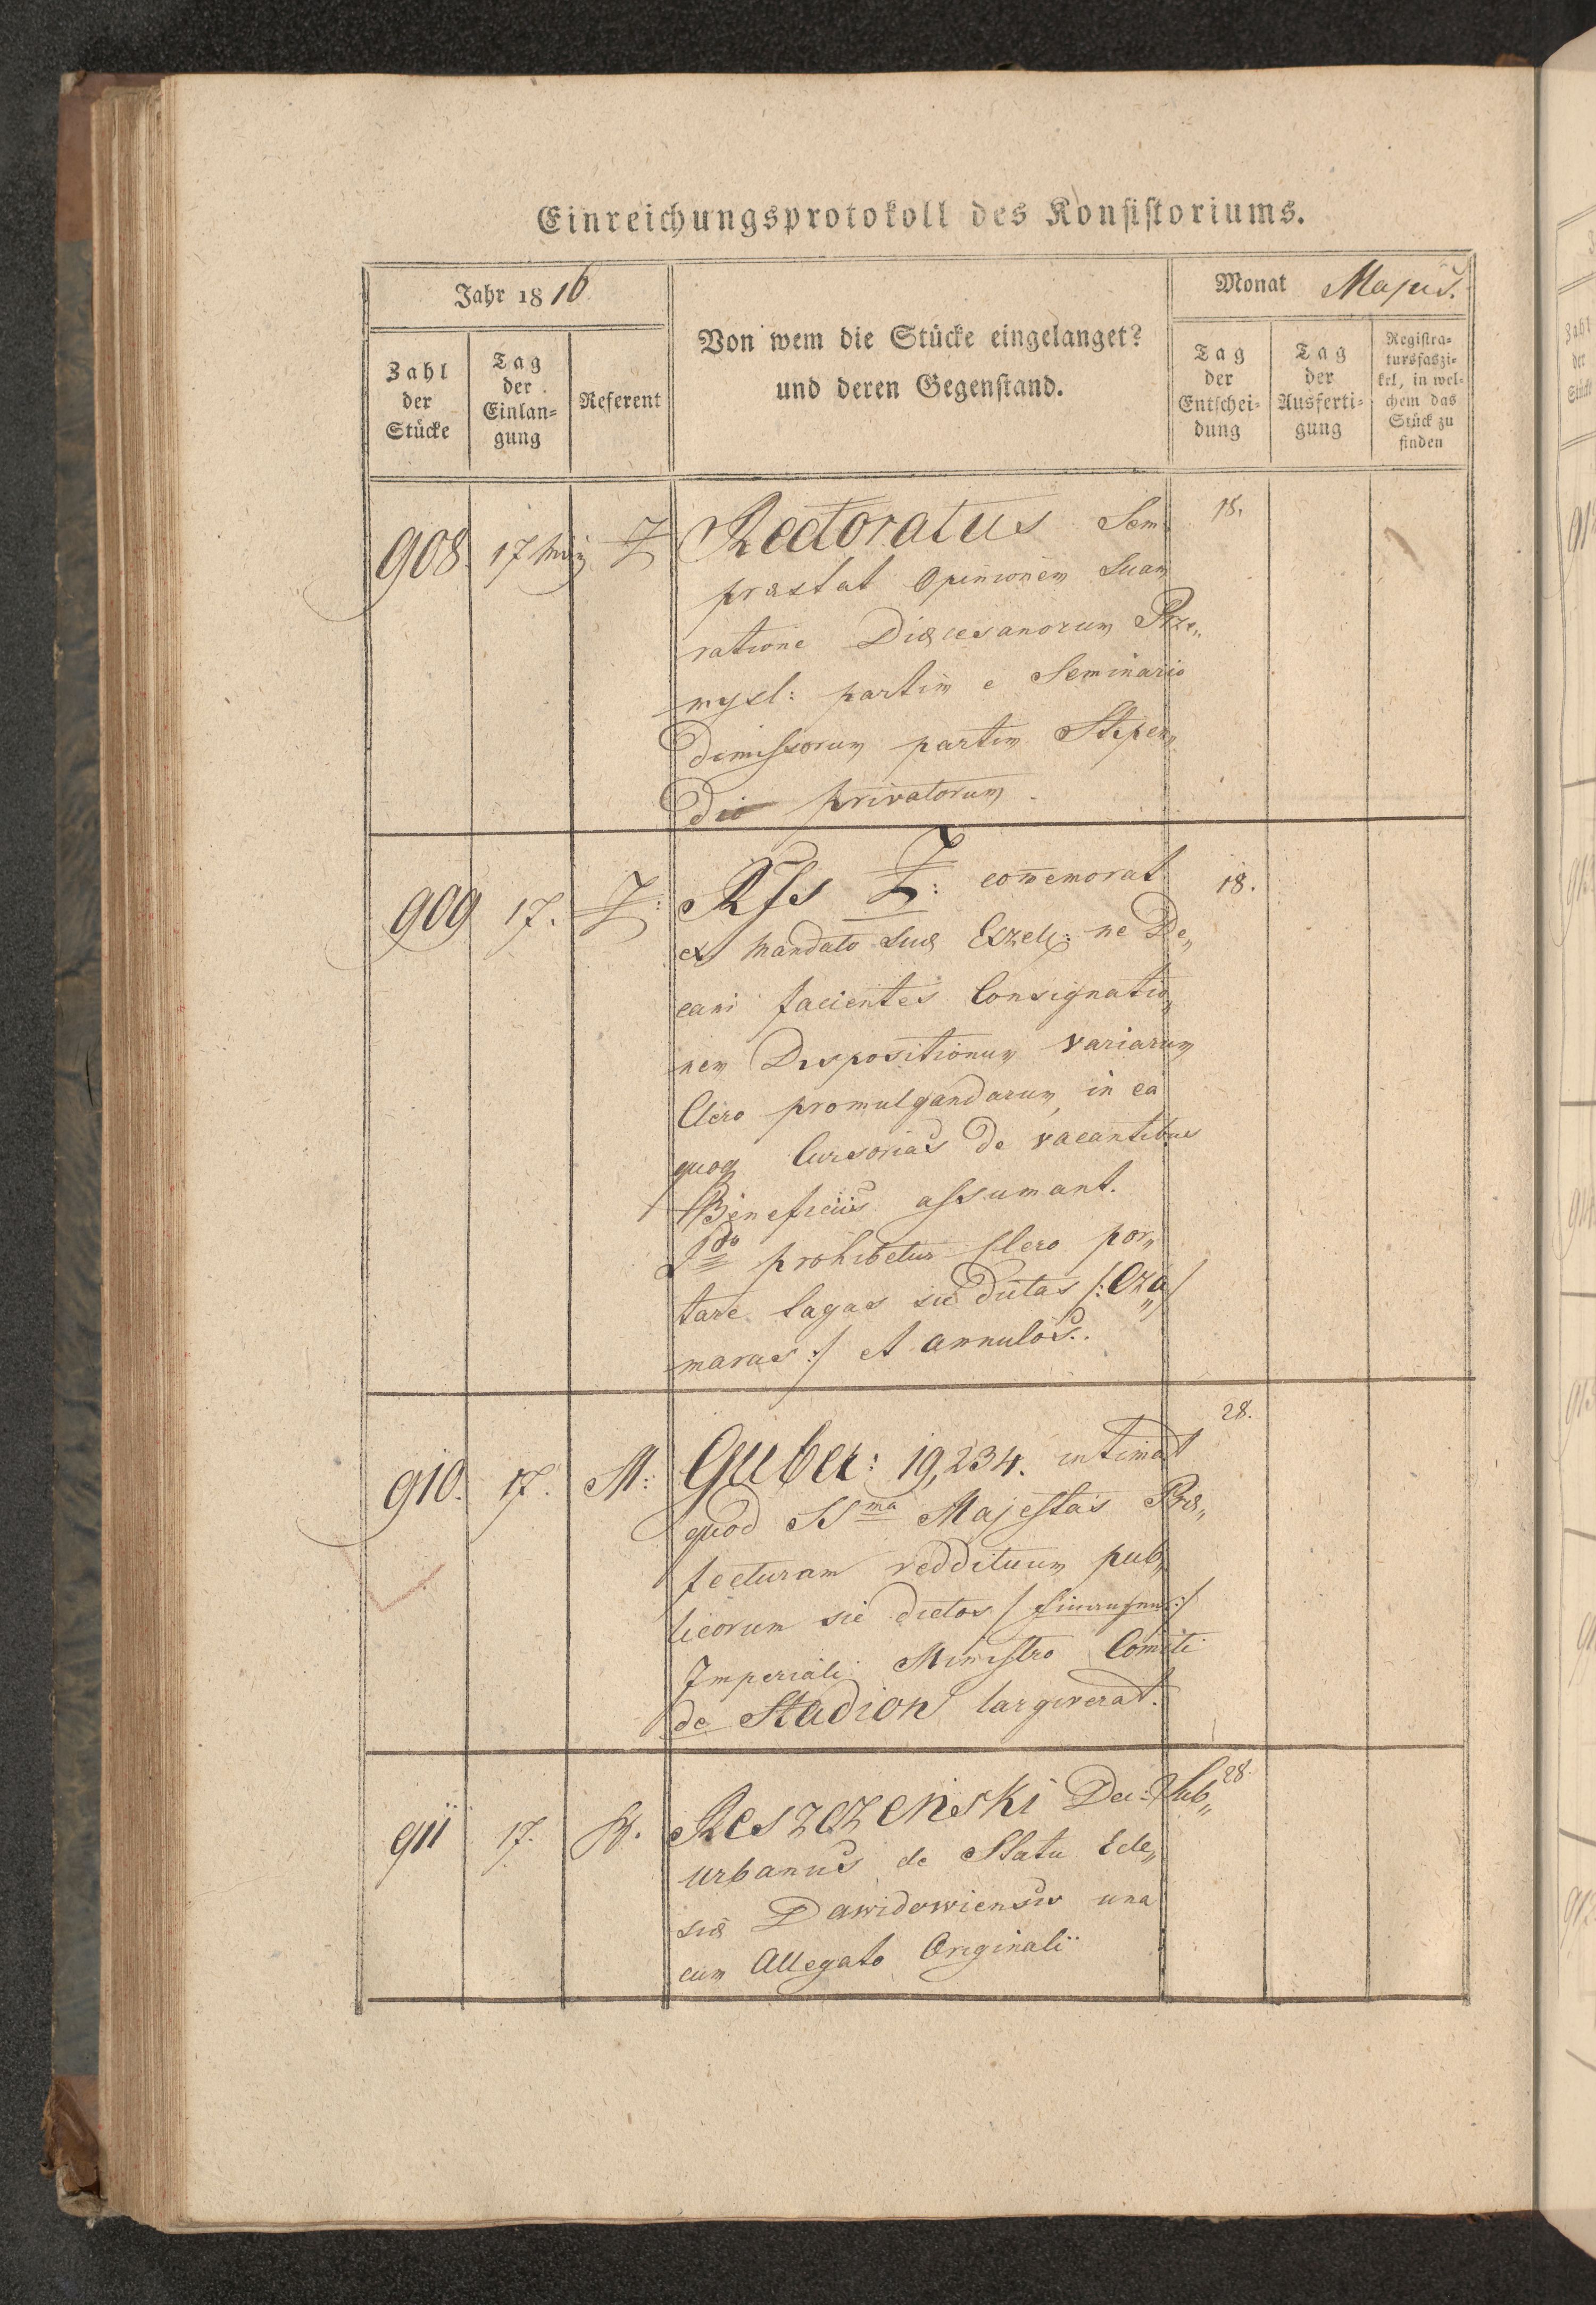 Einreichungsprotokoll des Konsistoriums.
Jahr 1816
Monat Majus.
Zahl der Stücke
Tag der Einlan=gung
Referent
Von wem die Stücke eingelanget?
und deren Gegenstand.
Tag der Entschei=dung
Tag der Ausferti=gung
Registra=tursfaszi=kel, in wel=chem das Stück zu finden
908. 17 Maij Z Rectoratus Sem: 18.
præstat Opinionem Suam
ratione Diæcesanorum Prze„
mysl: partim e Seminario
dimissorum partim Stipen„
dio privatorum.
909 17. Z: Z: commemorat 18.
ex Mandato Suæ Exzell: ne De„
cani facientes Consignatio„
nem Dispositionum variarum
Clero promulgandarum, in ea
quoq Cursorias de vacantibus
Beneficiis assumant.
2do prohibetur Clero por„
tare Sagas sic dictas /: Cza„
maras :/ et annulos.
910. 17. M: Guber: 19,234. intimat 28.
quod SSma Majestas Præ„
fecturam reddituum pub„
licorum sic dictos /
Imperiali Ministro Comiti
de Stadion largiverat.
911 17. Reszczenski Dec: Sub„ 28.
urbanus de Statu Ecle„
siæ Dawidowiensis una
cum Allegato Originali